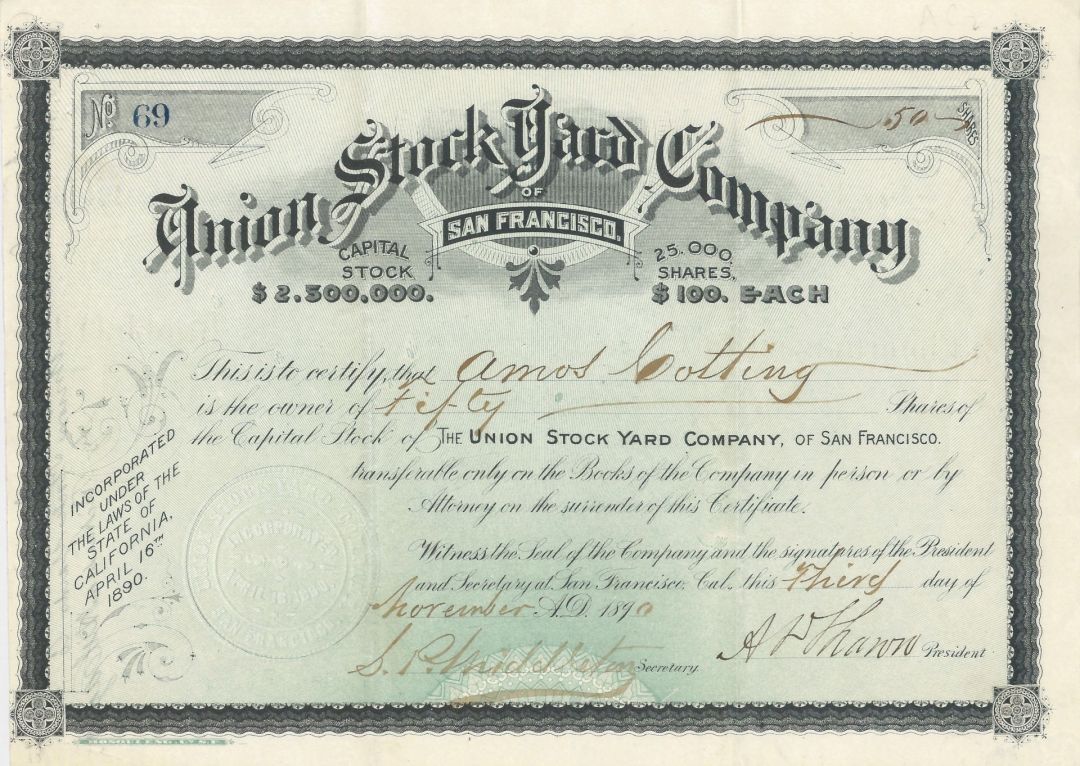 No. 69
50 SHARES
Union Stock Yard Company
OF
SAN FRANCISCO.
CAPITAL STOCK $2.500.000.
25.000. SHARES, $100. EACH
This is to certify, that Amos Cotting
is the owner of Fifty Shares of
the Capital Stock of THE UNION STOCK YARD COMPANY, OF SAN FRANCISCO.
transferable only on the Books of the Company in person or by
Attorney on the surrender of this Certificate.
INCORPORATED
UNDER
THE LAWS OF THE
STATE OF
CALIFORNIA,
APRIL 16TH
1890.
Witness the Seal of the Company and the signatures of the President
and Secretary at San Francisco, Cal. this Third day of
November A.D. 1890
S. P. Middleton Secretary.
President
UNION STOCK YARD
INCORPORATED
SAN FRANCISCO